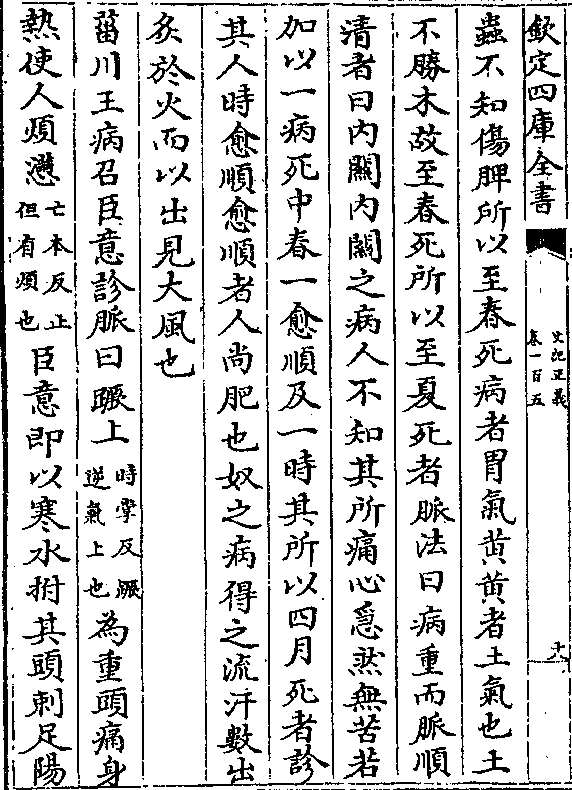 欽定四庫全書
史記正義
卷一百五
十八
蟲不知傷脾所以至春死病者胃氣黄黄者土氣也土
不勝木故至春死所以至夏死者脈法曰病重而脈順
清者曰内關内關之病人不知其所痛心急然無苦若
加以一病死中春一愈順及一時其所以四月死者診
其人時愈順愈順者人尚肥也奴之病得之流汗數出
炙於火而以出見大風也
菑川王病召臣意診脈曰蹶上時掌反蹶逆氣上也為重頭痛身
熱使人煩懣亡本反止但有煩也臣意即以寒水拊其頭刺足陽